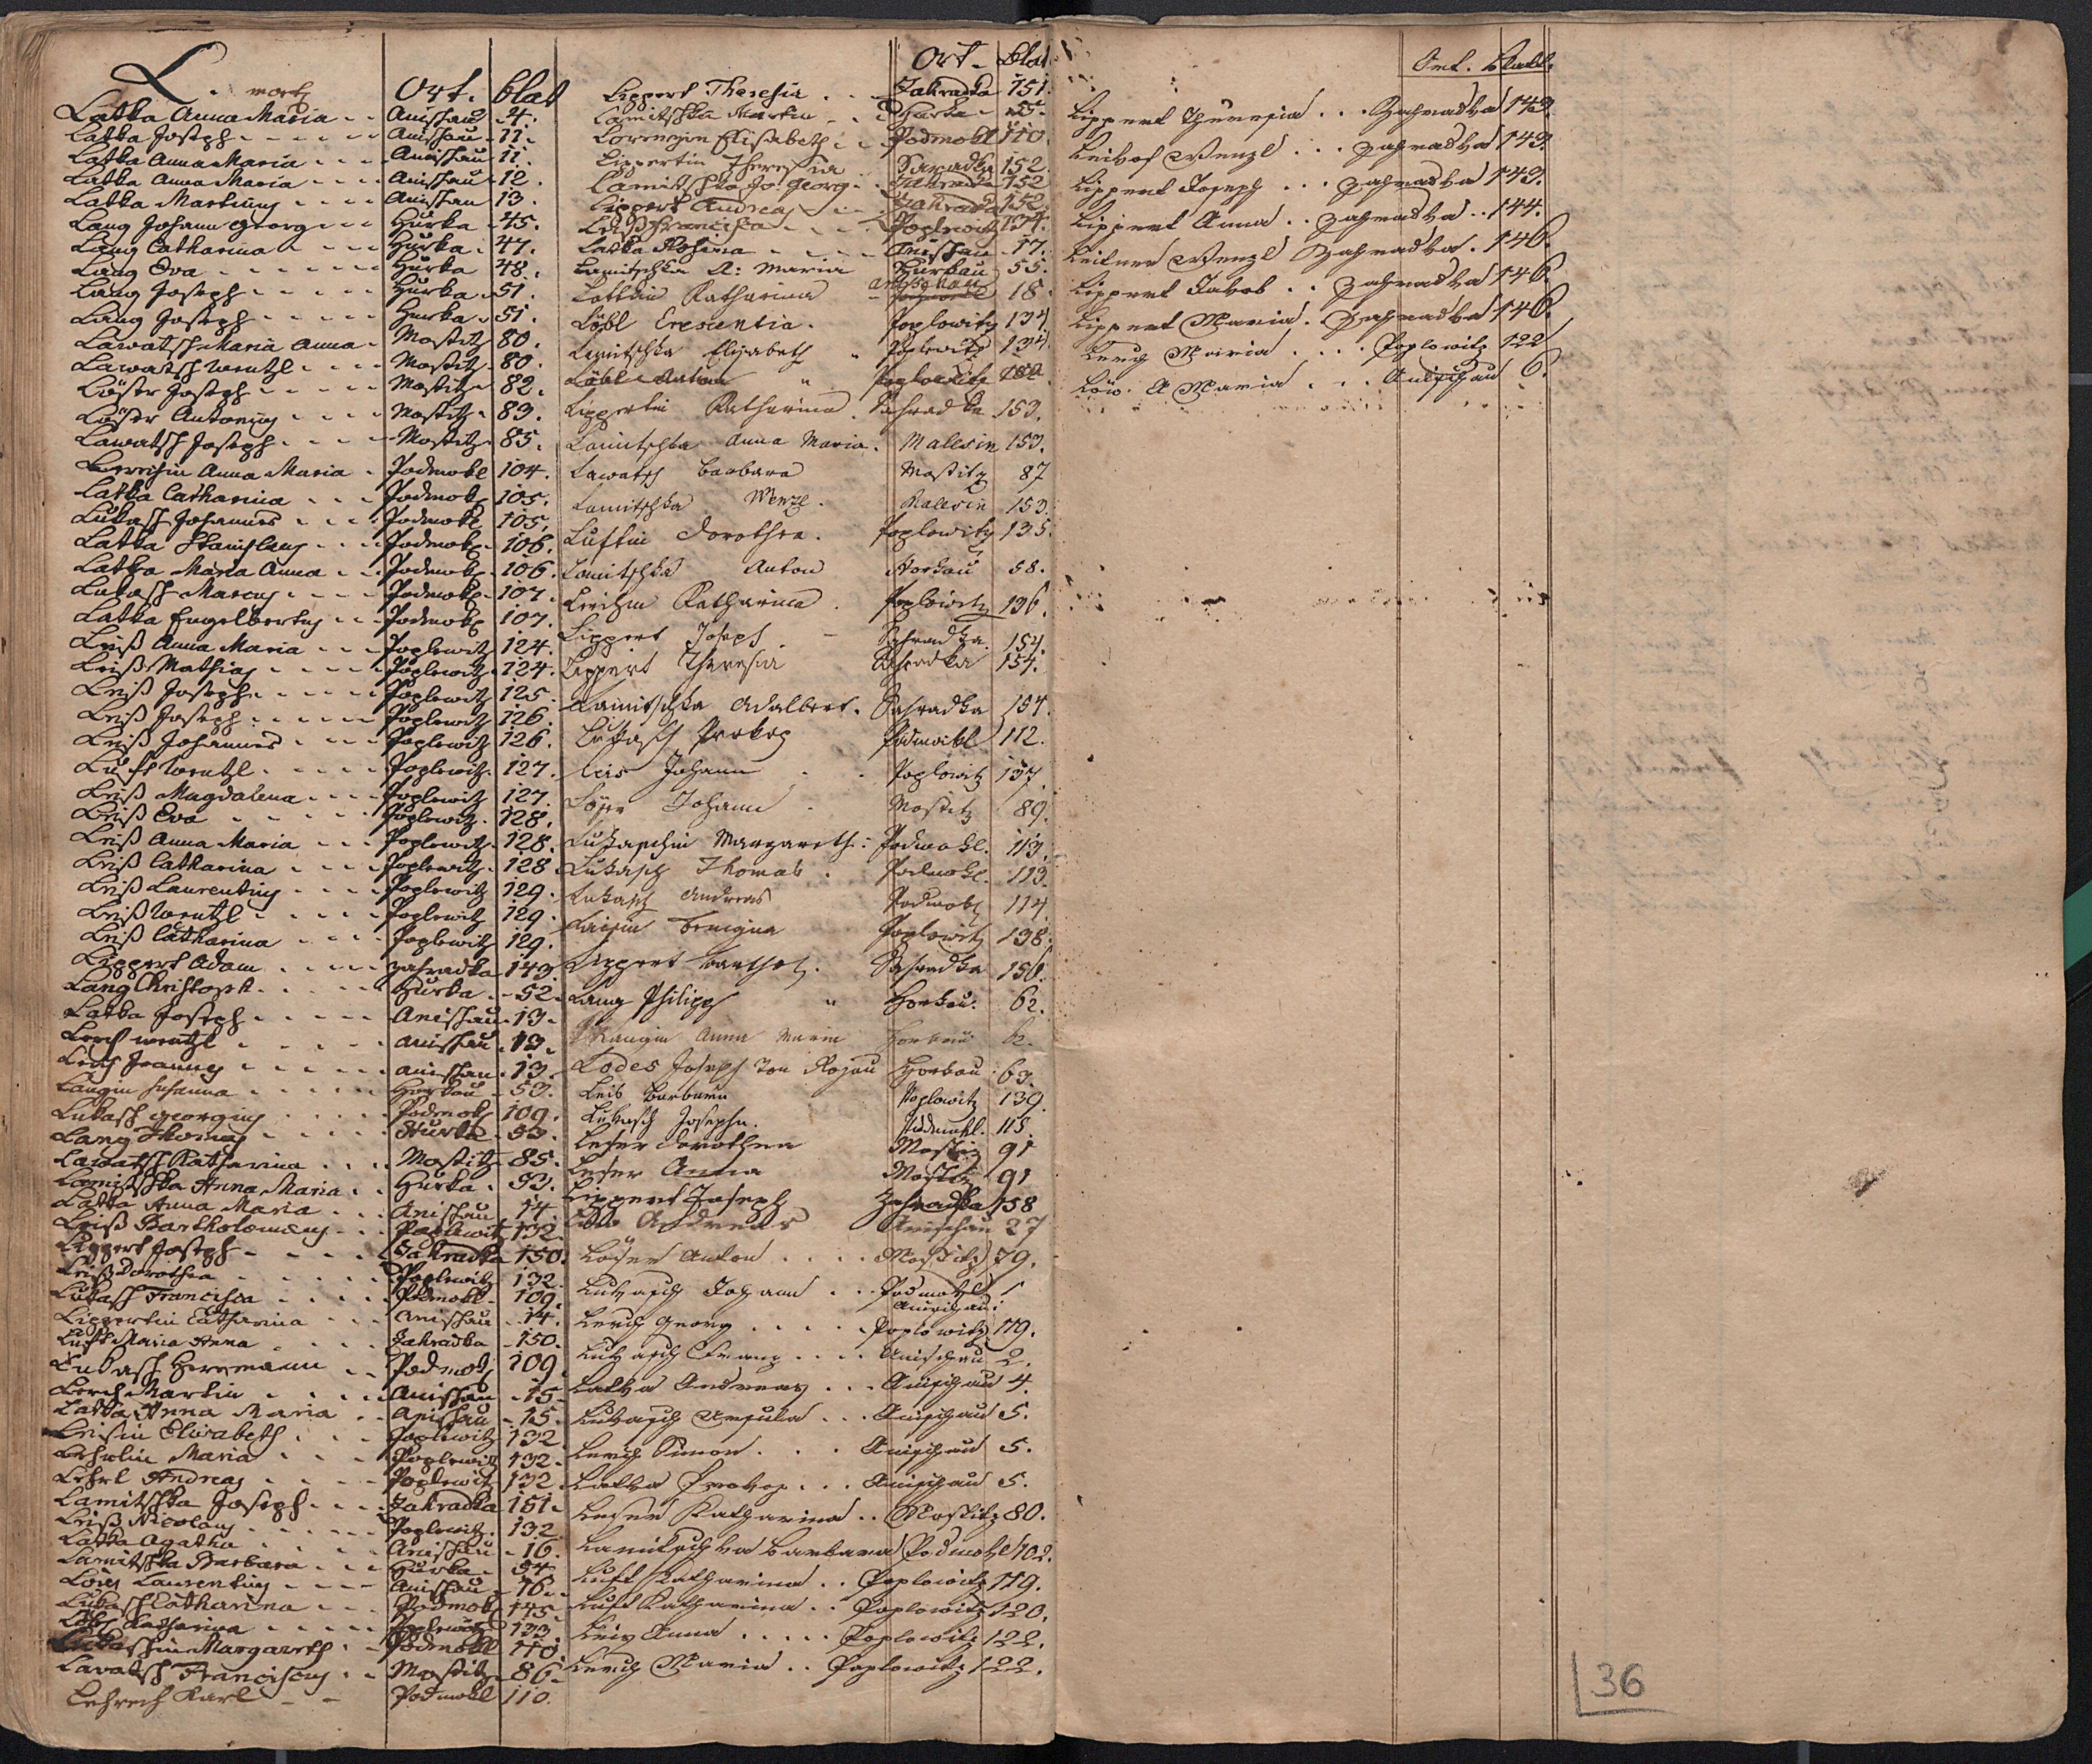 L. Ort. blat
Latka Anna Maria Anischau 4.
Latka Joseph Anischau 11.
Latka Anna Maria Anischau 11.
Latka Anna Maria Anischau 12.
Latka Martinus Anischau 13.
Lang Johann Georg Hurka 45.
Lang Catharina Hurka 47.
Lang Eva Hurka 48.
Lang Joseph Hurka 51.
Lang Joseph Hurka 51.
Lawatsch Maria Anna Mostitz 80.
Lawatsch Wentzl Mostitz 80.
Löser Joseph Mostitz 82.
Löser Antonius Mostitz 83.
Lawatsch Joseph Mostitz 85.
Anna Maria Podmokl 104.
Latka Catharina Podmokl 105.
Lukasch Johannes Podmokl 105.
Latka Stanislaus Podmokl 106.
Latka Maria Anna Podmokl 106.
Lukasch Marcus Podmokl 107.
Latka Engelbertus Podmokl 107.
Leiß Anna Maria Poplowitz 124.
Leiß Mathias Poplowitz 124.
Leiß Joseph Poplowitz 125.
Leiß Joseph Poplowitz 126.
Leiß Johannes Poplowitz 126.
Luft Wentzl Poplowitz 127.
Leiß Magdalena Poplowitz 127.
Leiß Eva Poplowitz 128.
Leiß Anna Maria Poplowitz 128.
Leiß Catharina Poplowitz 128
Leiß Laurentius Poplowitz 129.
Leiß Wentzl Poplowitz 129.
Leiß Catharina Poplowitz 129.
Lippert Adam Zahradka 143.
Lang Christoph Hurka 52.
Latka Joseph Anischau 13.
Lerch Wentzl Anischau 13.
Anischau 13.
Langin Susanna Horkau 53.
Lukasch Georgius Podmokl 109.
Lang Thomas Hurka 53.
Lawatsch Katharina Mostitz 85.
Lamitschka Anna Maria Hurka 53.
Latka Anna Maria Anischau 14.
Leiß Bartholomæus Poplowitz 132.
Lippert Joseph Zahradka 150.
Leiß Dorothea Poplowitz 132.
Lukasch Francisca Podmokl 109.
Lippertin Catharina Anischau 14.
Luft Maria Anna Zahradka 150.
Lukasch Herrmann Podmokl 109.
Lerch Martin Anischau 15.
Latka Anna Maria Anischau 15.
Leisin Elisabeth Poplowitz 132.
Maria Poplowitz 132.
Andreas Poplowitz 132.
Lamitschka Joseph Zahradka 151.
Leiß Nicolaus Poplowitz 132.
Latka Agatha Anischau 16.
Lamitschka Barbara Hurka 54.
Laurentius Anischau 16.
Lukasch Catharina Podmokl
Katharina Poplowitz 133.
Lukaschin Margareth Podmokl 110.
Lavatsch Franciscus Mostitz 86.
Karl Podmokl 110.
Ort. blat
Lippert Theresia Zahradka 151.
Lamitschka Martin Hurka 55.
Elisabeth Podmokl 110.
Lippertin Theresia Saradka 152.
Lamitschka Jo. Georg Zahradka 152
Lippert Andreas Zahradka 152.
Leiß Francisca Poplowitz 134.
Latka Rosina Anischau 17.
Lamitschka A: Maria Hurkau 55.
Katharina Anischau 18.
Löbl Crescentia. Poplowitz 134.
Lamitschka Elisabeth Poplowitz 134.
Löbl Anton Poplowitz
Lippertin Katharina. Sahradka 153.
Lamitschka Anna Maria. Mallesin 153.
Lawatsch Barbara Mostitz 87
Lamitschka Wenzl. Malesin 153.
Luftin Dorothea. Poplowitz 135.
Lamitschka Anton Horkau 58.
Katharina. Poplowitz 136.
Lippert Joseph Sahradka. 154.
Lippert Theresia Sahradka 154.
Lamitschka Adalbert. Sahradka 154.
Lukasch Prokop Podmokl 112.
Leis Johann Poplowitz 137.
Johann Mostitz 89.
Lukaschin Margareth: Podmokl. 113.
Lukasch Thomas. Podmokl. 113.
Lukasch Andreas Podmokl 114.
Poplowitz 138.
Lippert Barthol. Sahradka 156.
Lang Philipp Horkau. 62.
Langin Anna Maria Horkau 62.
Lodes Joseph von Horkau 63.
Leis Barbara Poplowitz 139.
Lukasch Josepha. Podmokl. 115.
Leser Dorothea Mostitz 91
Leser Anna Mostitz 91
Lippert Joseph Zahradka 158
Andreas Anischau 27
Löser Anton Mostitz 79.
Lukasch Johann Podmokl 1
Anischau
Lerch Georg Poplowitz 119.
Lukasch Franz Anischau 2.
Latka Andreas Anischau 4.
Lukasch Ursula Anischau 5.
Lerch Simon Anischau 5.
Latka Prokop Anischau 5.
Leser Katharina Mostitz 80.
Lamitschka Barbara Podmokl 102.
Luft Katharina Poplowitz 119.
Luft Katharina Poplowitz 120.
Leis Anna Poplowitz 122.
Lerch Maria Poplowitz 122.
Ort. Blatt.
Lippert Theresia Zahradka 142.
Wenzl Zahradka 143.
Lippert Joseph Zahradka 143.
Lippert Anna Zahradka 144.
Wenzl Zahradka 146.
Lippert Jakob Zahradka 146.
Lippert Maria. Zahradka 146.
Lerch Maria Poplowitz 122
Löw. A Maria Anischau 6.
36